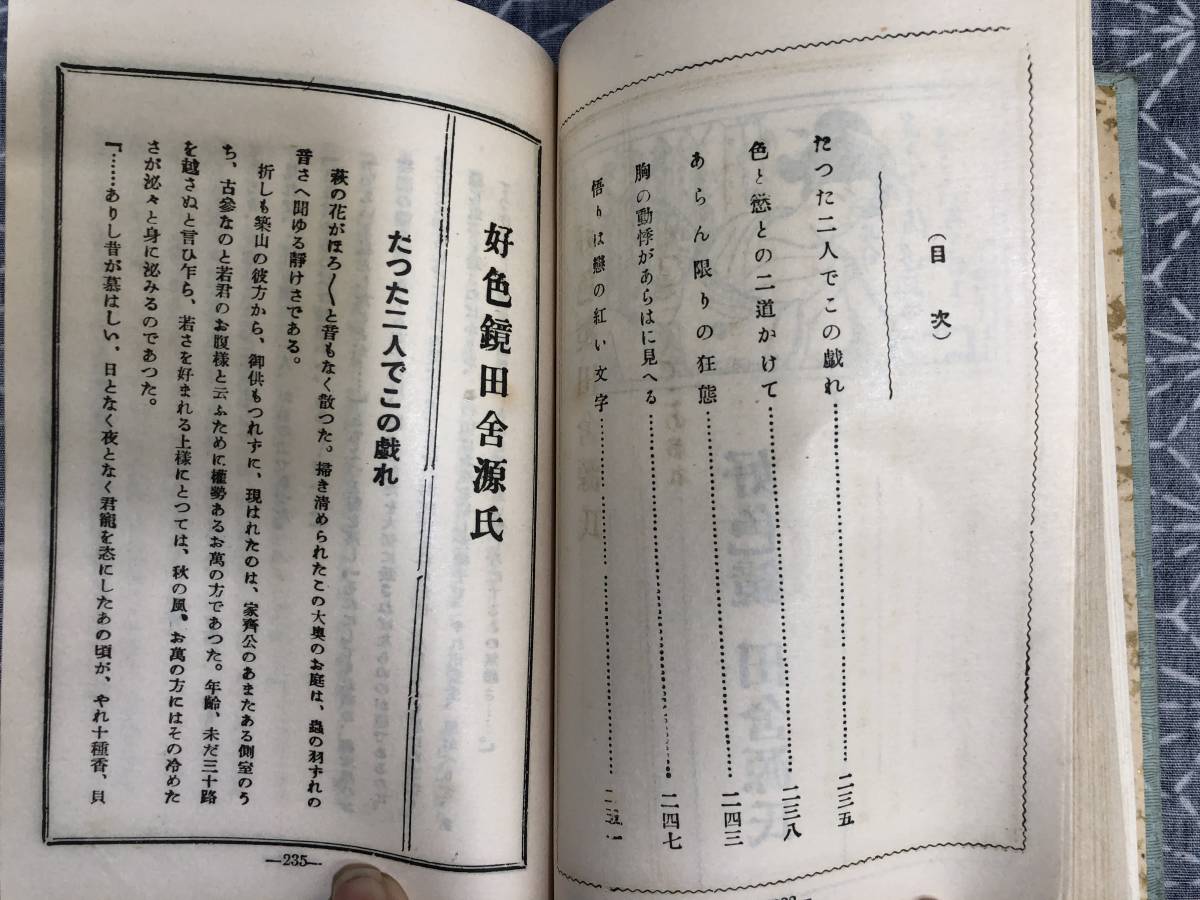 （目次）
たつた二人でこの戯れ……………二三五
色と慾との二道かけて……………二三八
あらん限りの狂態……………二四三
胸の動悸があらはに見へる……………二四七
悟りは戀の紅い文字……………二五一
好色鏡田舎源氏
たつた二人でこの戯れ
萩の花がほろ〱と音もなく散つた。掃き清められたこの大奥のお庭は、蟲の羽ずれの
音さへ聞ゆる靜けさである。
折しも築山の彼方から、御供もつれずに、現はれたのは、家齊公のあまたある側室のう
ち、古參なのと若君のお腹様と云ふために權勢あるお萬の方であつた。年齡、未だ三十路
を越さぬと言ひ乍ら、若さを好まれる上様にとつては、秋の風。お萬の方にはその冷めた
さが泌々と身に泌みるのであつた。
『……ありし昔が慕はしい、日となく夜となく君寵を恣にしたあの頃が、やれ十種香、貝
—235—